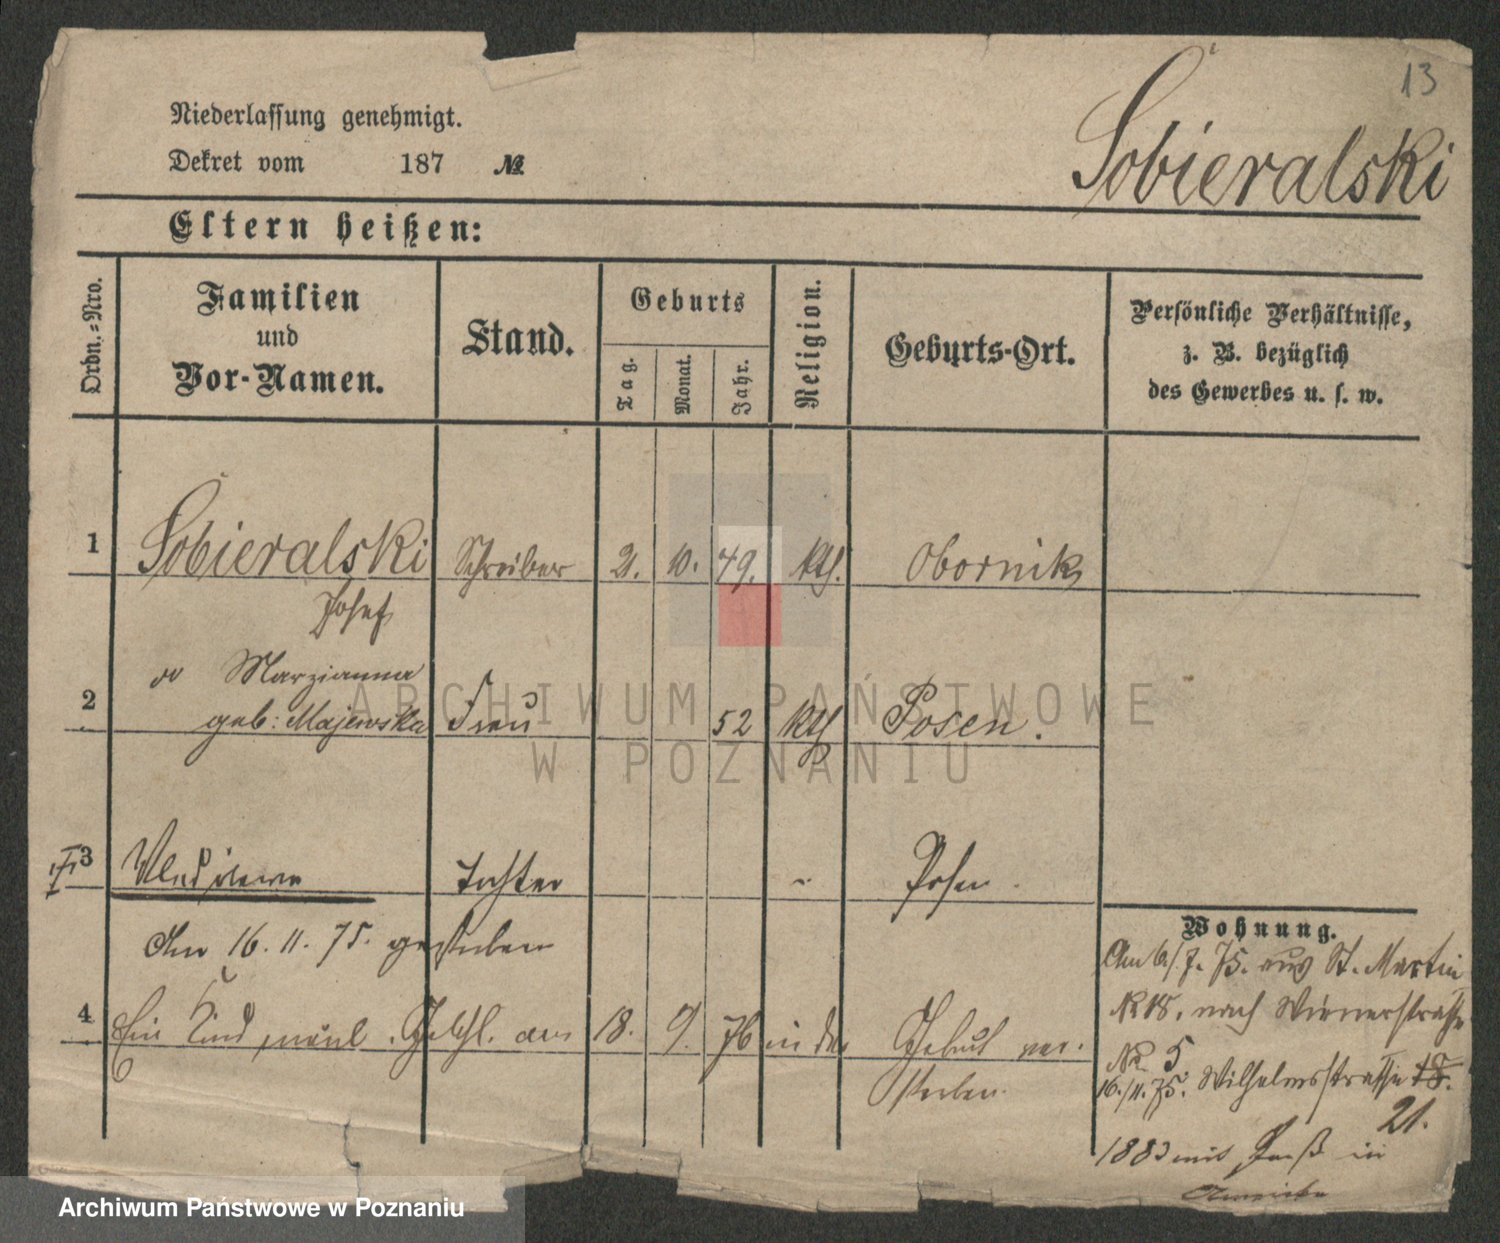 13
Sobieralski
Niederlassung genehmigt.
Dekret vom 187 №
Eltern heißen:
Ordn.-Nro.
Familien
und
Vor-Namen.
Stand.
Geburts
Tag.
Monat.
Jahr.
Religion.
Geburts-Ort.
Persönliche Verhältnisse,
z. B. bezüglich
des Gewerbes u. s. w.
1 Sobieralski Schreiber 21. 10. 49. kth. Obornik
Josef
Marzianna
2 geb: Majewska Frau 52 kth Posen.
3 Tochter Posen
Am 16. 11. 75. gestorben
4 Ein Kind, männl. Geschl. am 18. 9. 76 in der Geburt ver-
storben.
Wohnung.
Am 6./7. 75. aus St. Martin
No 18, nach Wienerstrasse
No 5
16./11. 75. Wilhelmsstrasse 18.
21.
1883 mit Paß in
Amerika
ARCHIWUM PAŃSTWOWE
W POZNANIU
Archiwum Państwowe w Poznaniu